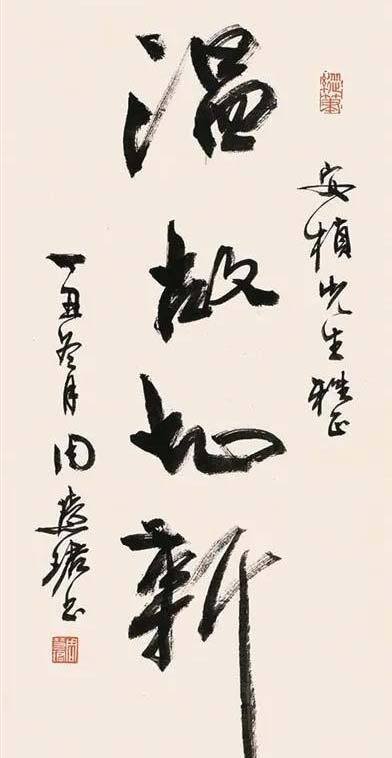 安楨先生雅正
温故知新
丁丑冬月周慧珺书